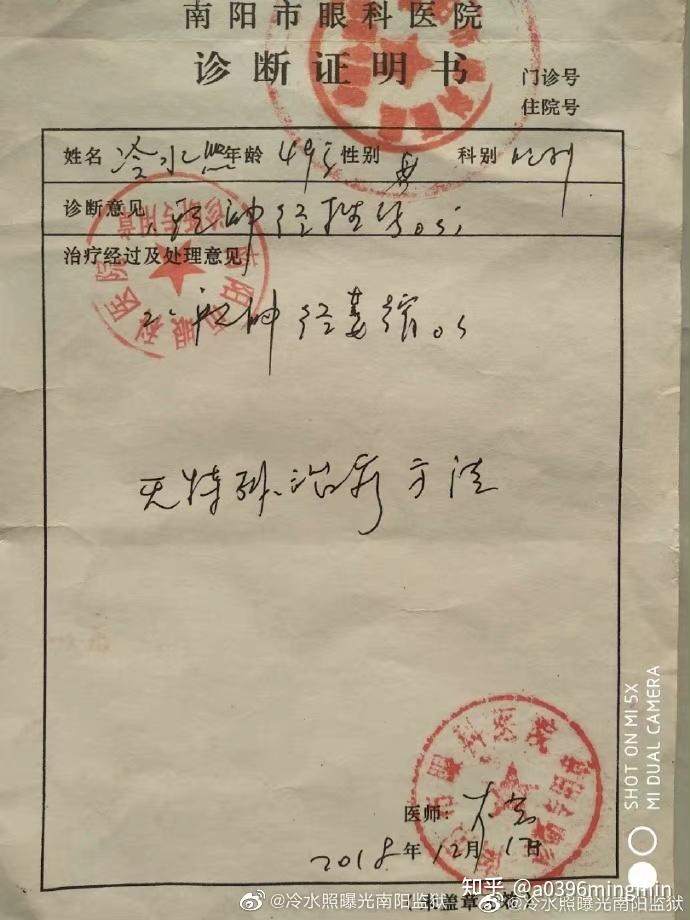 南阳市眼科医院
诊断证明书
门诊号
住院号
姓名 冷水照 年龄 49岁 性别 男 科别 眼科
诊断意见 1.视神经挫伤.os;
治疗经过及处理意见
2.视神经萎缩.os
无特殊治疗方法
医师:
2018年12月17日
SHOT ON MI 5X
MI DUAL CAMERA
知乎 @a0396mingmin
@冷水照曝光南阳监狱
@冷水照曝光南阳监狱